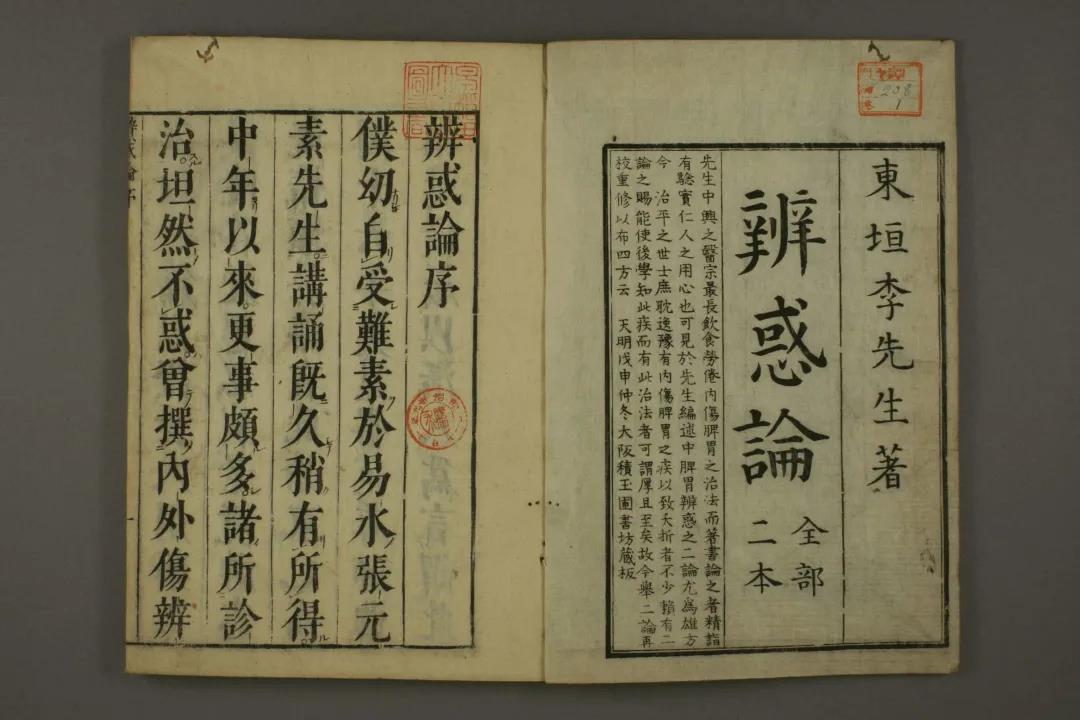 東垣李先生著
辨惑論
全部
二本
先生中興之醫宗最長飲食勞倦內傷脾胃之治法而著書論之者精詣
有驗實仁人之用心也可見於先生編述中脾胃辨惑之二論尤為雄方
今 治平之世士庶耽逸豫有內傷脾胃之疾以致夭折者不少賴有二
論之賜能使後學知此疾而有此治法者可謂厚且至矣故今舉二論再
校重修以布四方云 天明戊申仲冬大阪積玉圃書坊藏板
208
1
辨惑論序
僕幼自受難素於易水張元
素先生講誦既久稍有所得
中年以來更事頗多諸所診
治坦然不惑曾撰內外傷辨
辨惑論序
一